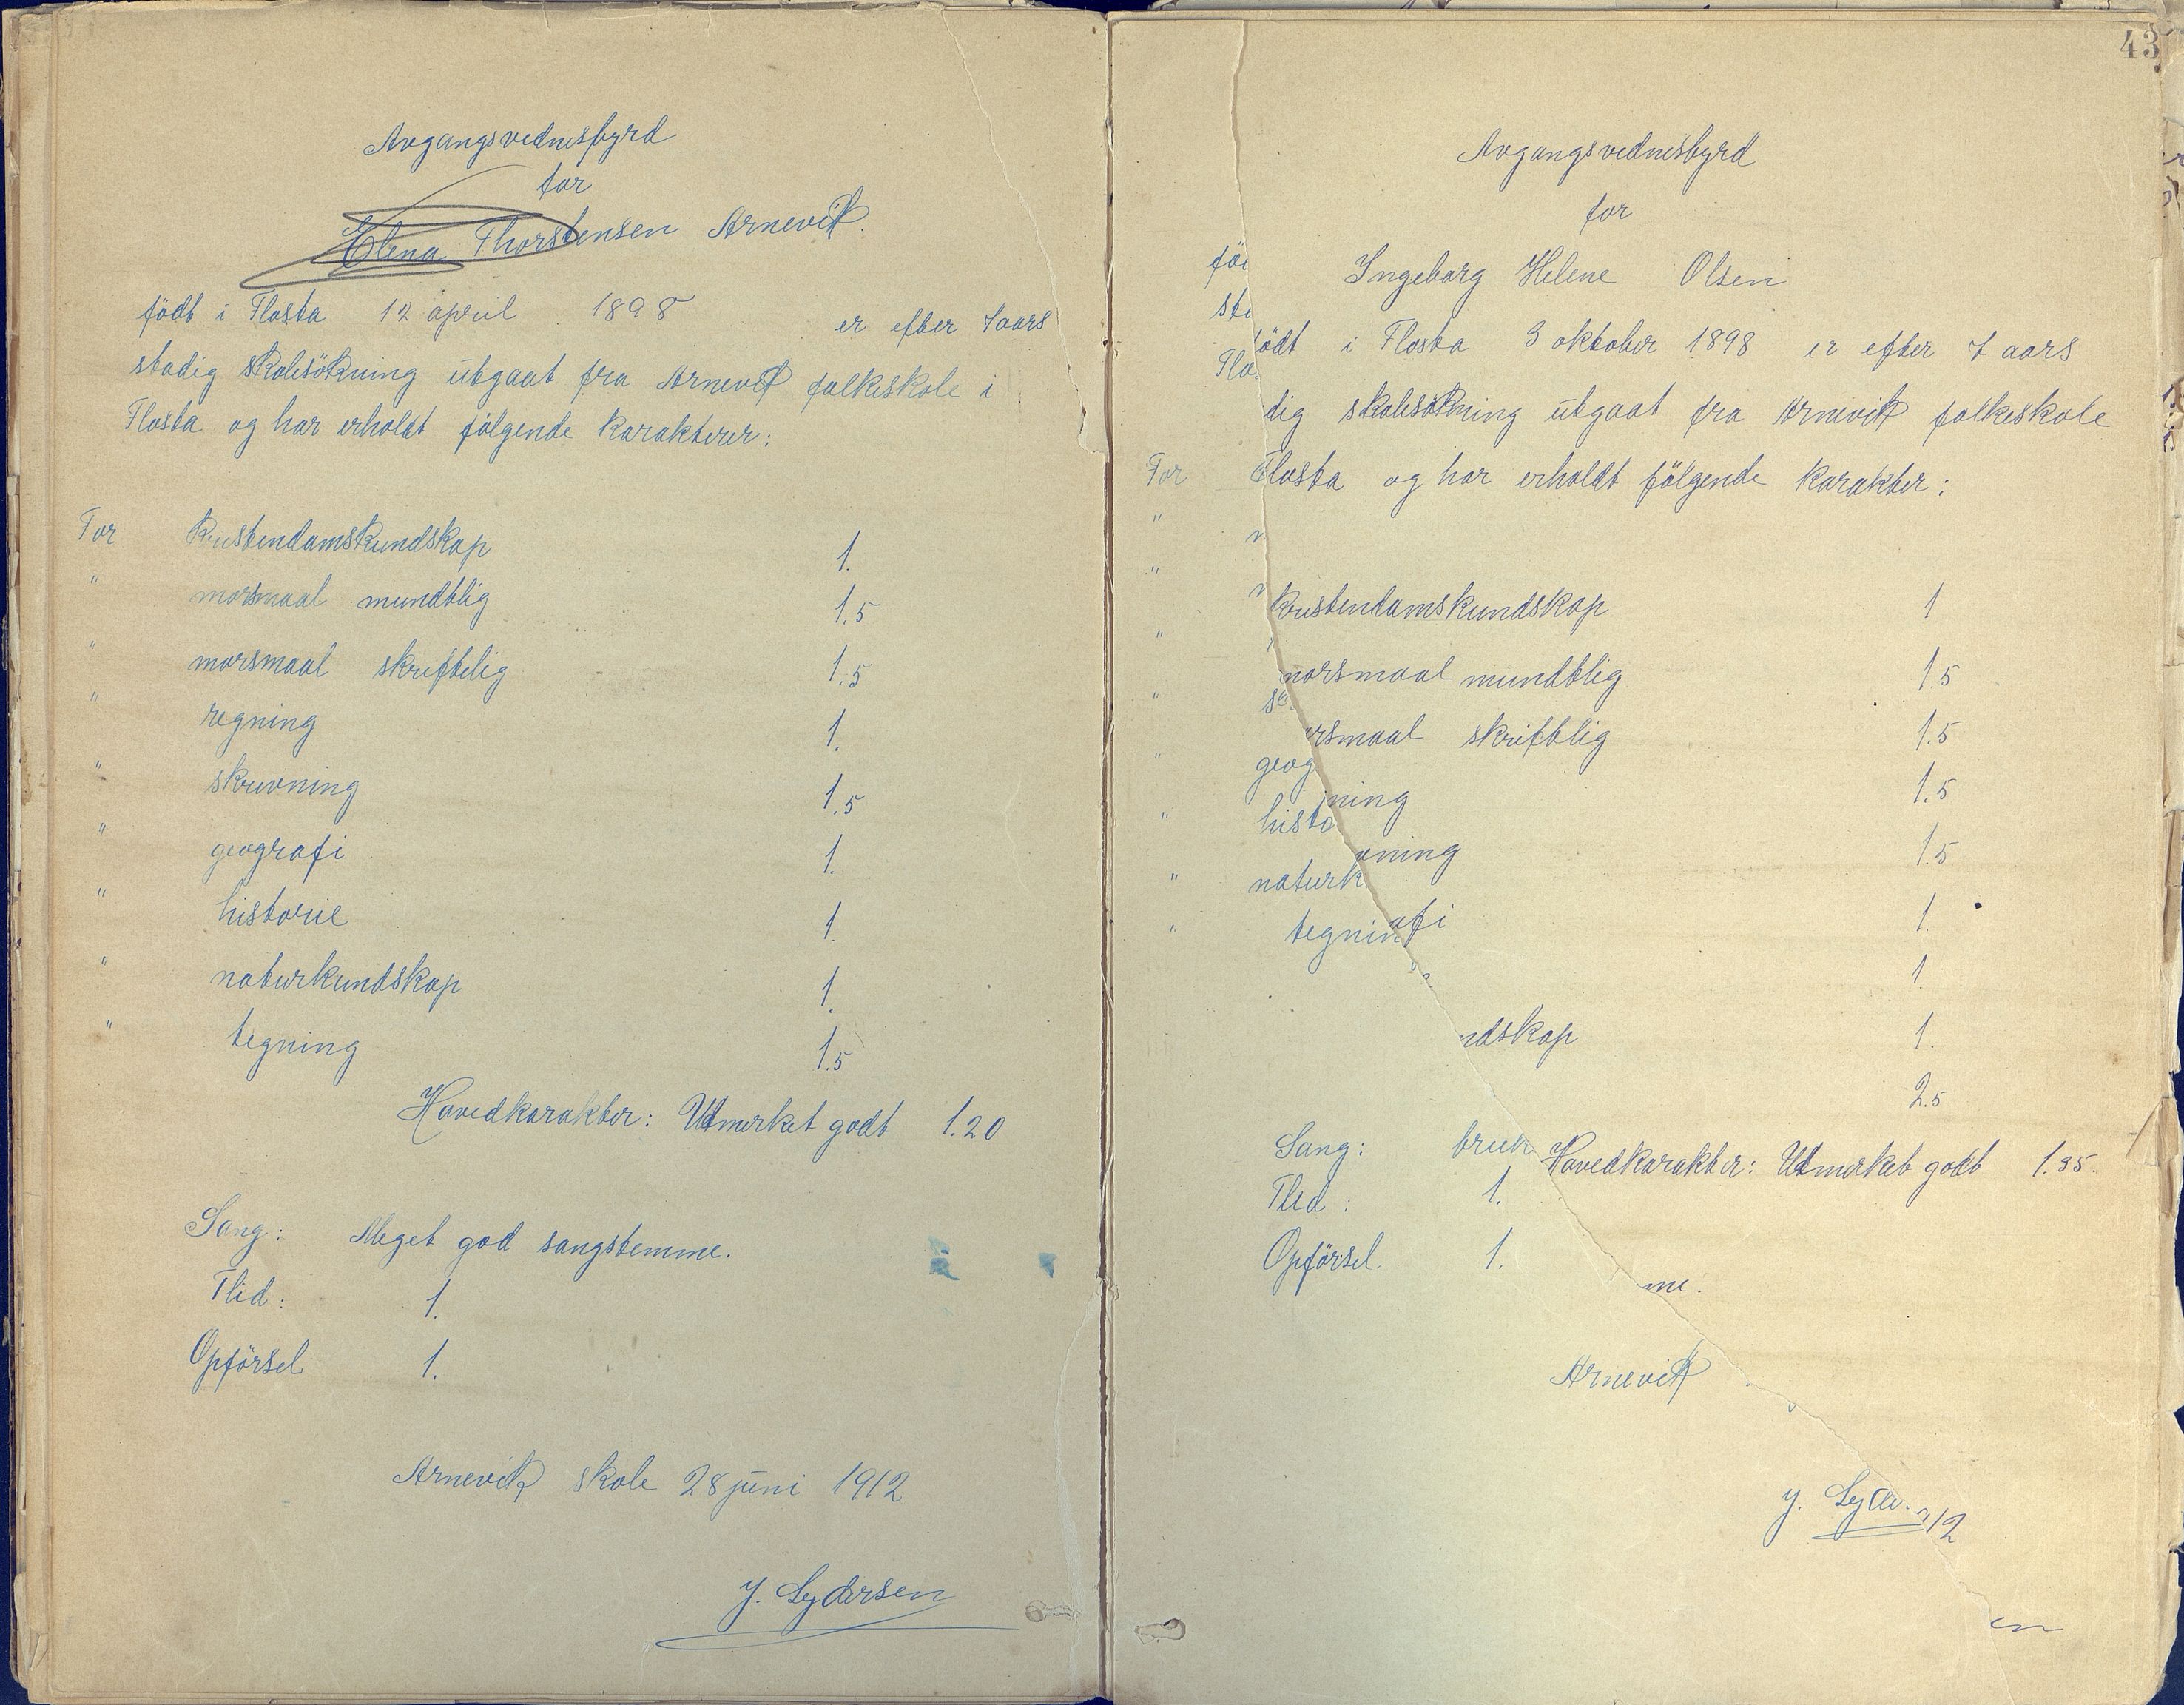 Avgangsvednesbyrd
for
Elena Thorstensen Arnevik.
födt i Flosta 12 april 1898 er efter 7 aars
stadig skolesökning utgaat fra Arnevik folkeskole i
Flosta og har erholdt följgende karakterer:
For kristendomskundskap 1.
" morsmaal mundtlig 1.5
" morsmaal skriftelig 1.5
" regning 1.
" skrivning 1.5
" geografi 1.
" historie 1.
" naturkundskap 1.
" tegning 1.5
Hovedkarakter: Utmerket godt 1.20
Sang: Meget god sangstemme.
Flid: 1.
Opförsel 1.
Arnevik skole 28 juni 1912
J. Lydersen
43
Avgangsvednesbyrd
for
Ingeborg Helene Olsen
födt i Flosta 3 oktober 1898 er efter 7 aars
dig skolesökning utgaat fra Arnevik folkeskole
Flosta og har erholdt fölgende karakter:
For
kristendamskundskap 1
morsmaal mundtlig 1.5
rsmaal skriftlig 1.5
geog
ning 1.5
histo
vning 1.5
naturk
afi 1.
tegnin
1.
ndskap 1.
2.5
Sang: bruk Hovedkarakter: Utmerket godt 1.35.
Flid: 1.
Opförsel. 1.
me.
Arnevik
J. Lyde
12
en